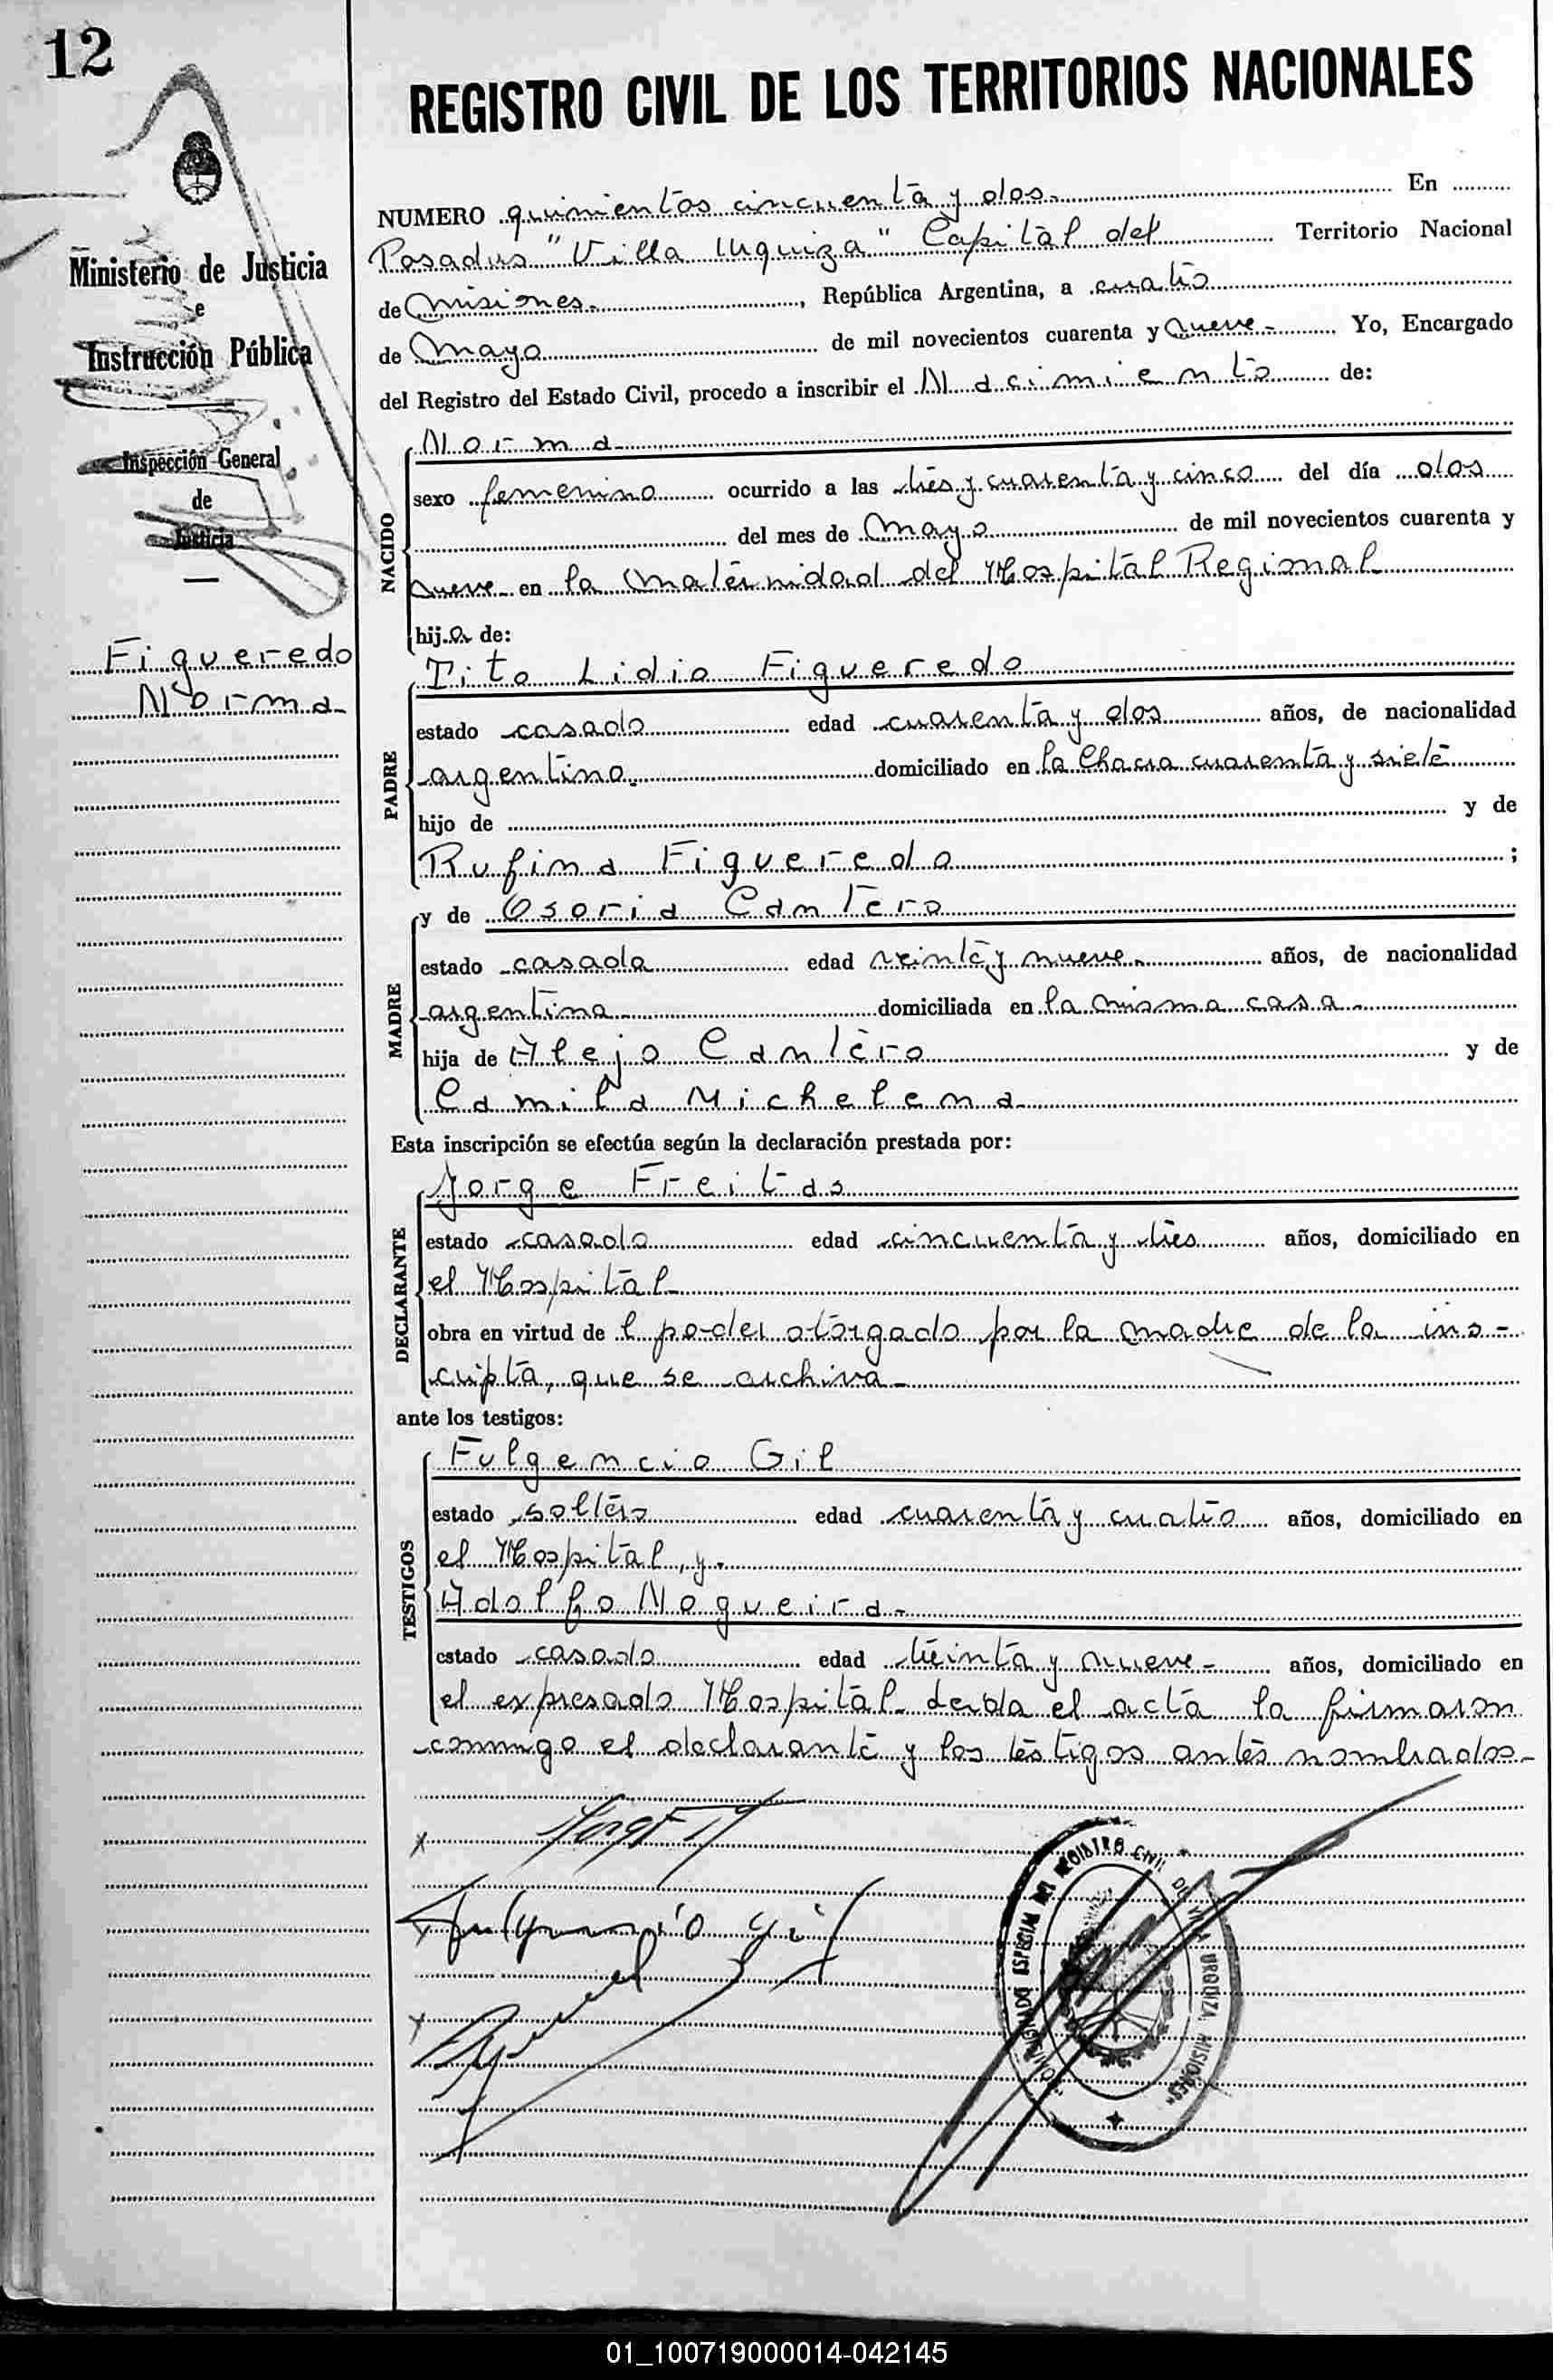 12
REGISTRO CIVIL DE LOS TERRITORIOS NACIONALES
Ministerio de Justicia
e
Instrucción Pública
Inspección General
de
Justicia
Figueredo
Norma
NUMERO quinientos cincuenta y dos. En
Posadas "Villa Urquiza" Capital del Territorio Nacional
de Misiones. , República Argentina, a cuatro
de Mayo de mil novecientos cuarenta y nueve - Yo, Encargado
del Registro del Estado Civil, procedo a inscribir el Nacimiento de:
NACIDO
Norma
sexo femenino ocurrido a las tres y cuarenta y cinco del día dos
del mes de Mayo de mil novecientos cuarenta y
nueve en la Maternidad del Hospital Regional
hija de:
PADRE
Tito Lidio Figueredo
estado casado edad cuarenta y dos años, de nacionalidad
argentino. domiciliado en la Chacra cuarenta y siete
hijo de y de
Rufina Figueredo ;
MADRE
y de Osoria Cantero
estado casada edad veinte y nueve años, de nacionalidad
argentina domiciliada en la misma casa
hija de Alejo Cantero y de
Camila Michelena
Esta inscripción se efectúa según la declaración prestada por:
DECLARANTE
Jorge Freitas
estado casado edad cincuenta y tres años, domiciliado en
el Hospital
obra en virtud de l poder otorgado por la madre de la ins-
cripta, que se archiva
ante los testigos:
TESTIGOS
Fulgencio Gil
estado soltero edad cuarenta y cuatro años, domiciliado en
el Hospital, y.
Adolfo Nogueira-
estado casado edad treinta y nueve - años, domiciliado en
el expresado Hospital leida el acta la firmaron
conmigo el declarante y los testigos antes nombrados-
Fulgencio Gil
REGISTRO CIVIL DE VILLA URQUIZA. MISIONES
01_100719000014-042145